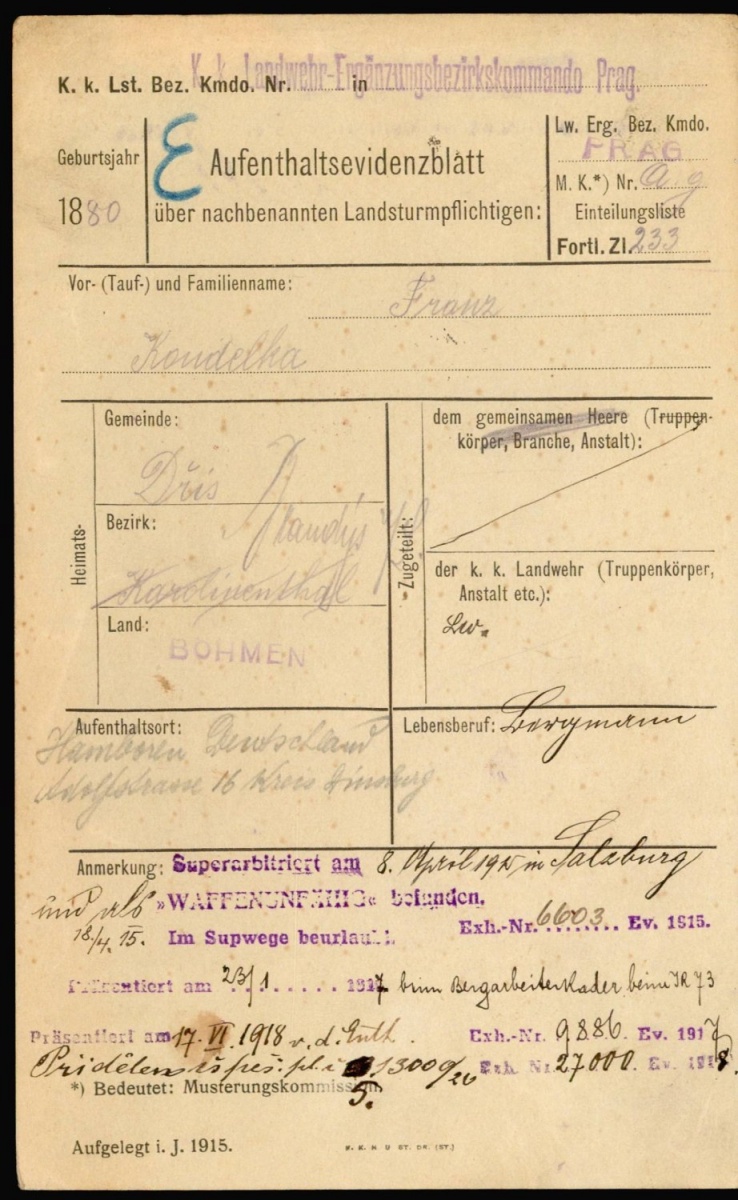 K. k. Landwehr-Ergänzungsbezirkskommando Prag.
K. k. Lst. Bez. Kmdo. Nr. in
Lw. Erg. Bez. Kmdo.
PRAG
Geburtsjahr
1880
E
Aufenthaltsevidenzblatt
über nachbenannten Landsturmpflichtigen:
M. K.*) Nr.
Einteilungsliste
Fortl. Zl. 233
Vor- (Tauf-) und Familienname:
Franz
Koudelka
Heimats-
Gemeinde:
Dřis
Bezirk:
Brandýs
Karolinenthal
Land:
BÖHMEN
Zugeteilt:
dem gemeinsamen Heere (Truppen-
körper, Branche, Anstalt):
der k. k. Landwehr (Truppenkörper,
Anstalt etc.):
Lw.
Aufenthaltsort:
Hamboren Deutschland
Adolfstrasse 16 Kreis
Lebensberuf: Bergmann
Anmerkung: Superarbitriert am 8. April 1915 in Salzburg
und als »WAFFENUNFÄHIG« befunden.
18./4. 15. Im Supwege beurlaubt.
Exh.-Nr. 6603 Ev. 1915.
Präsentiert am 23/1 1917 beim Bergarbeiterkader beim IR 73
Präsentiert am 17. VI. 1918 v. d. Enth.
Exh.-Nr. 9886. Ev. 1917
Přidělen 1300
Exh. Nr. 27000. Ev. 1918.
*) Bedeutet: Musterungskommission
5.
Aufgelegt i. J. 1915.
K. K. H. U. ST. DR. (ST.)